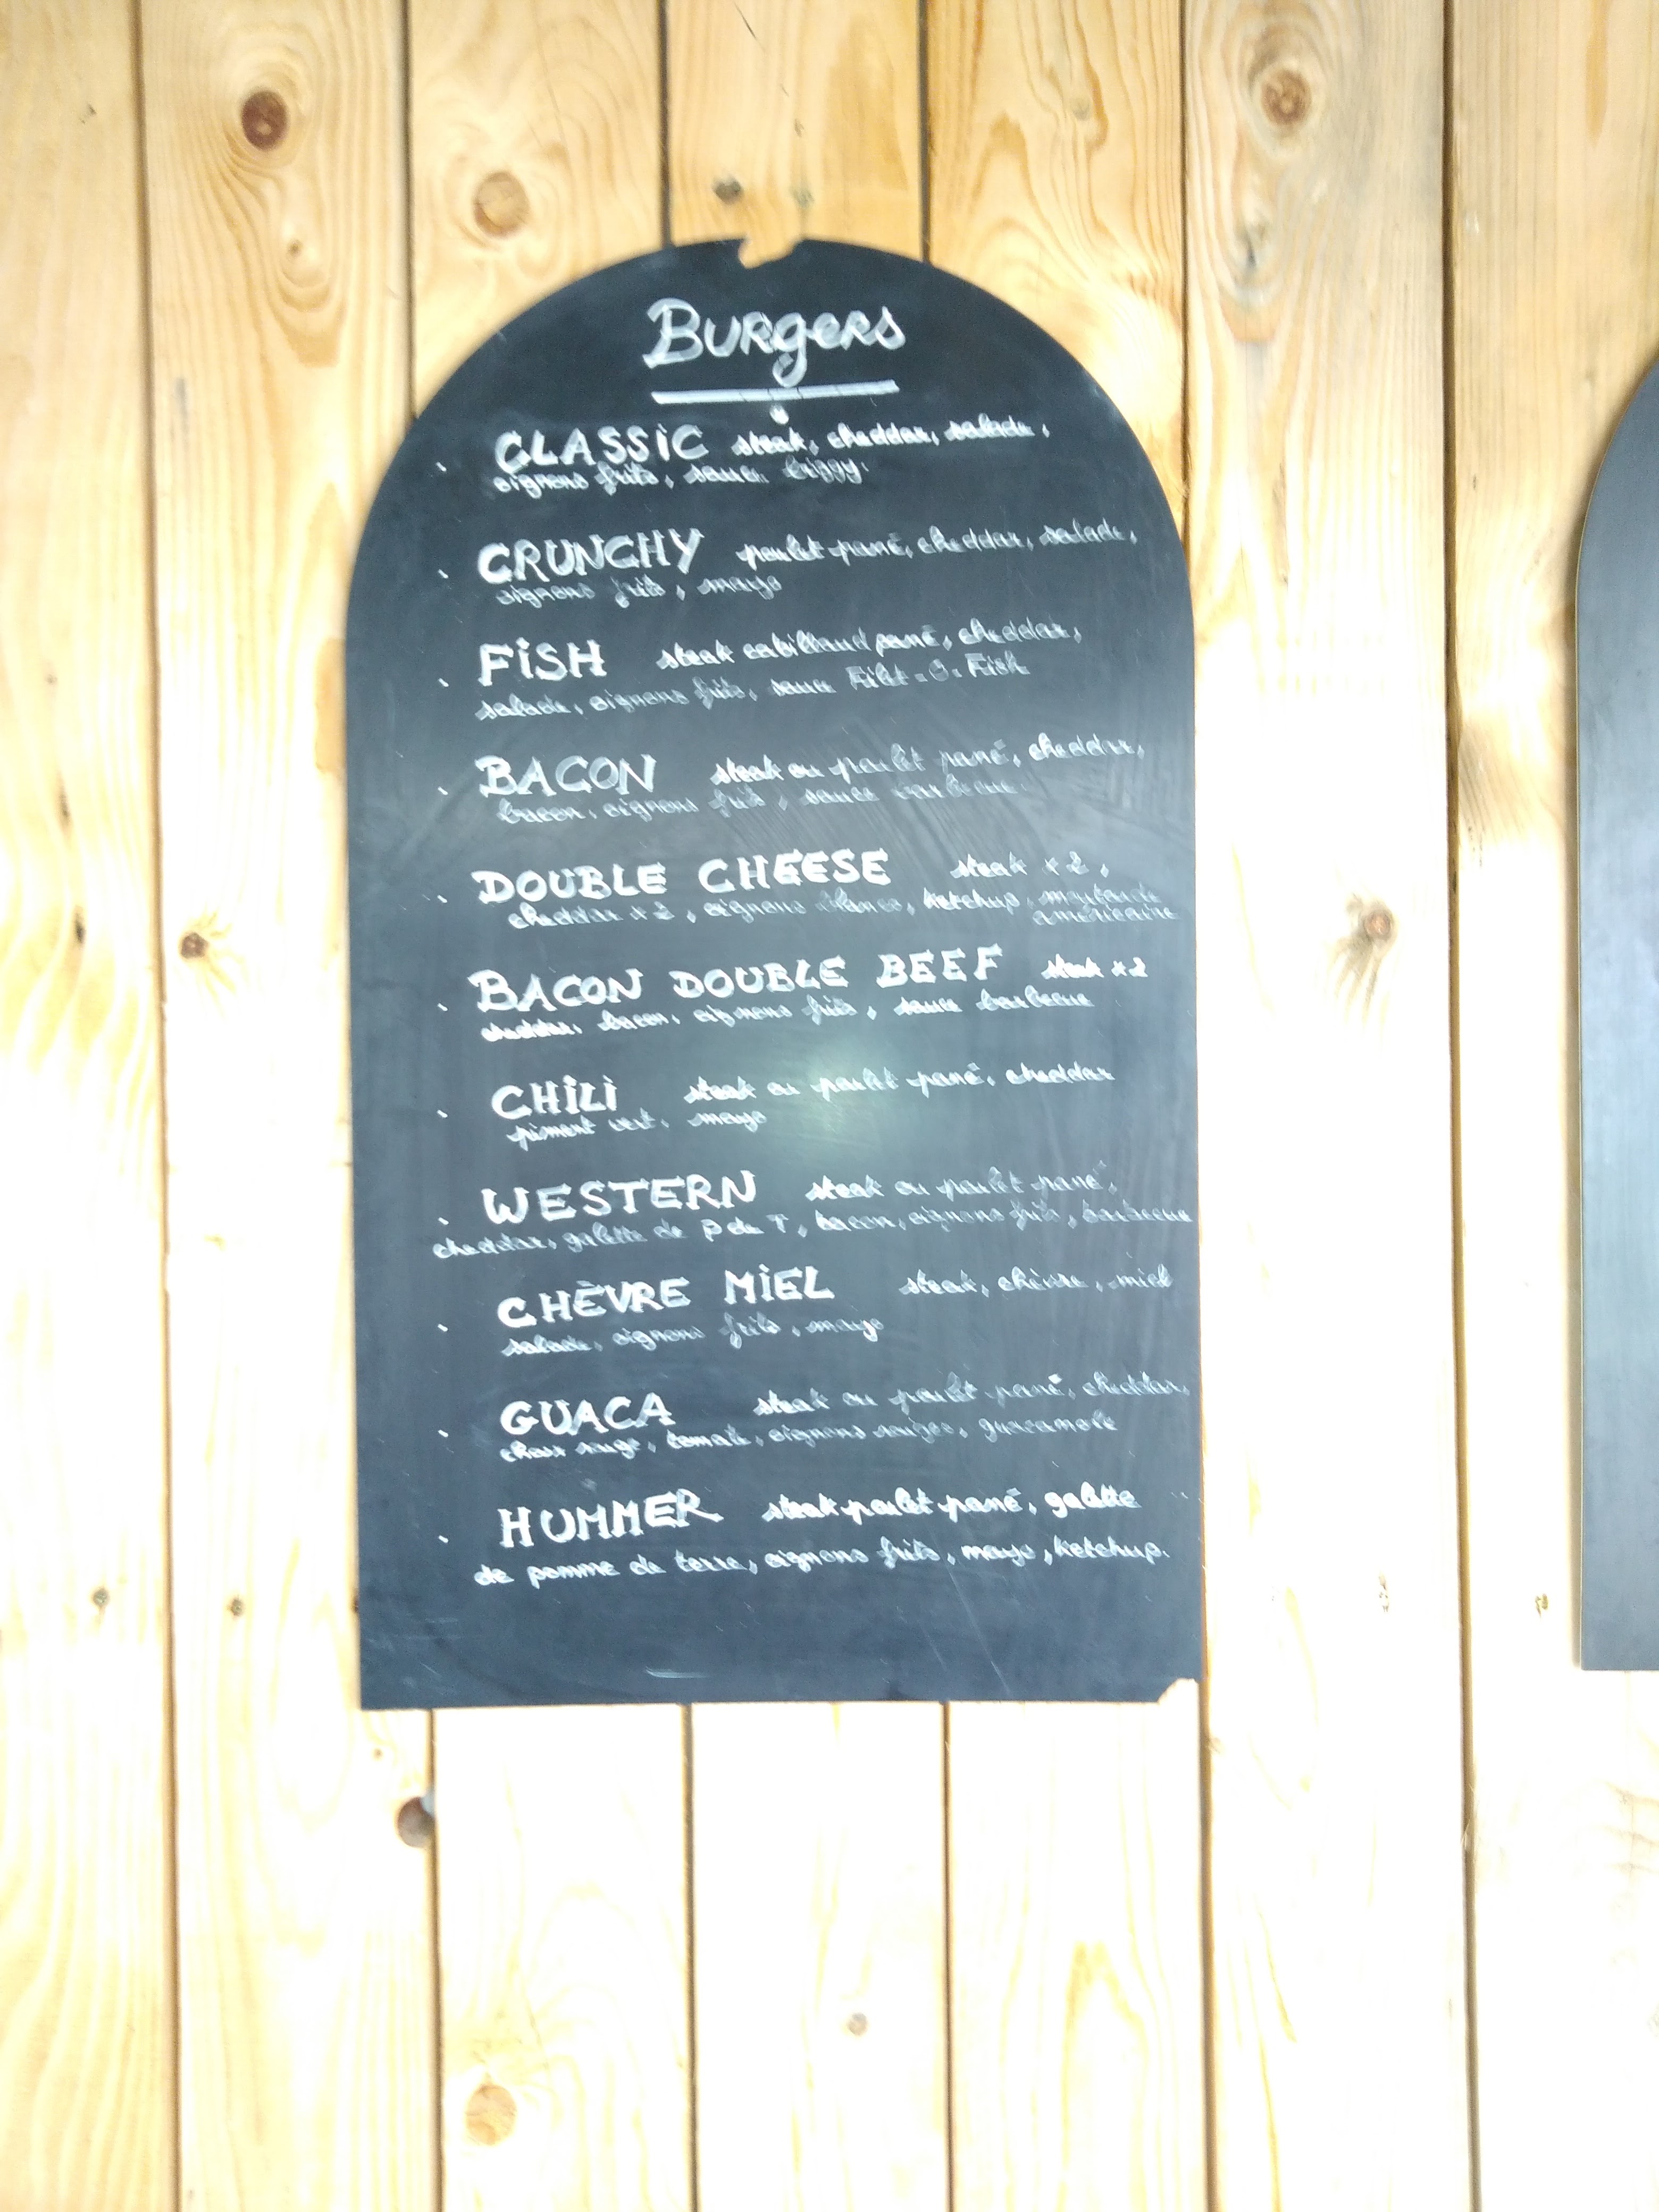 Burgers
CLASSIC steak, cheddar, salade,
oignons frits, sauce biggy.
CRUNCHY poulet pané, cheddar, salade,
oignons frits, mayo
FISH steak cabillaud pané, cheddar,
salade, oignons frits, sauce Filet-O-Fish
BACON steak ou poulet pané, cheddar,
bacon, oignons frits, sauce barbecue.
DOUBLE CHEESE steak x 2,
cheddar x 2, oignons blancs, ketchup, moutarde
américaine
BACON DOUBLE BEEF steak x 2
cheddar, bacon, oignons frits, sauce barbecue
CHILI steak ou poulet pané, cheddar
piment vert, mayo
WESTERN steak ou poulet pané,
cheddar, galette de P de T, bacon, oignons frits, barbecue
CHÈVRE MIEL steak, chèvre, miel
salade, oignons frits, mayo
GUACA steak ou poulet pané, cheddar,
choux rouge, tomate, oignons rouges, guacamole
HUMMER steak poulet pané, galette
de pomme de terre, oignons frits, mayo, ketchup.